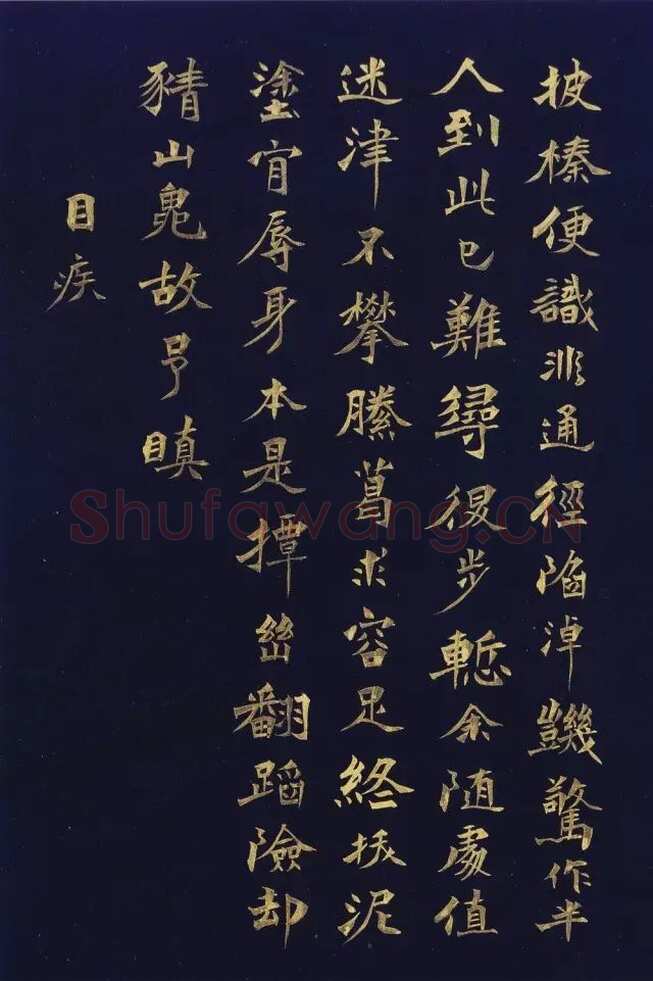 披榛便識非通徑陷淖驚作半
人到此已難尋復步慙余隨處值
迷津不攀縢葛求容足終拔泥
塗肯辱身本是撢幽翻蹈險却
猜山鬼故予瞋
目疾
Shufawang.CN